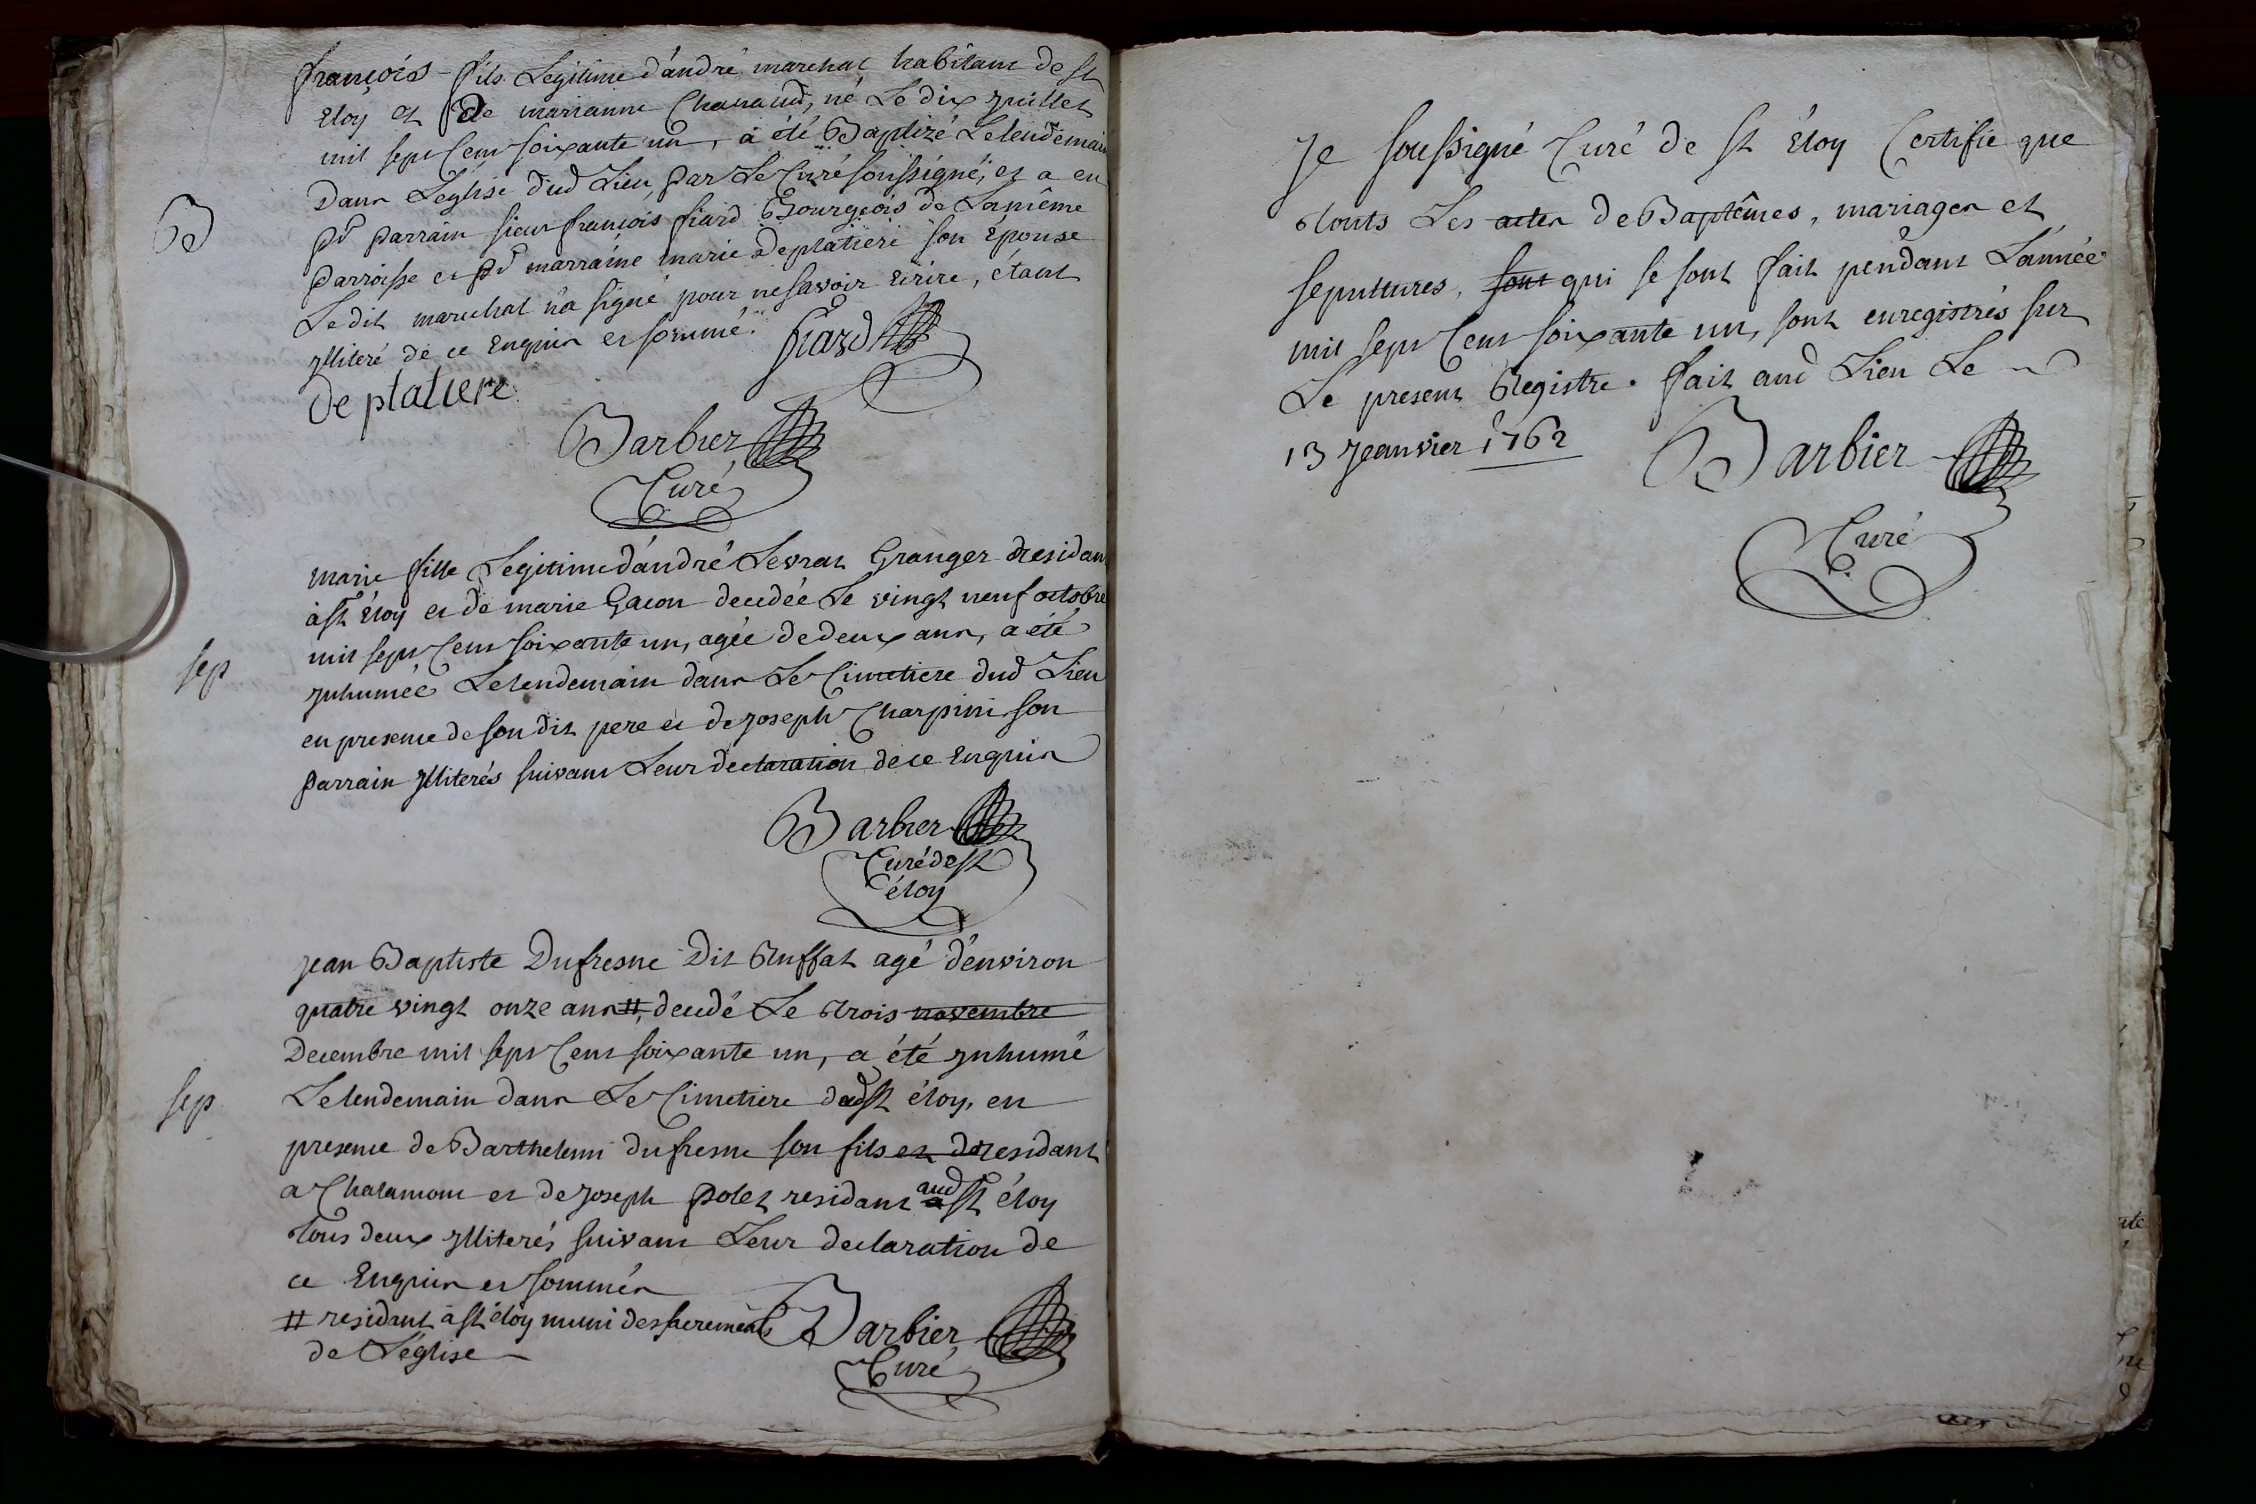 françois fils Legitime d'andré marchal habitant de St
Eloy et de marianne Chanaud, né Le dix juillet
mil sept Cent soixante un, a été Baptizé Lelendemain
Dans L'église dud Lieu, par Le Curé soussigné, et a eu
B
pr parrain sieur françois fiard Bourgeois de La même
parroisse et pr marraine marie Deplatiere son Epouse
Ledit marchal n'a signé pour ne savoir écrire, étant
ylliteré de ce Enquis et sommé. fiard
De platiere
Barbier
Curé
marie fille Legitime d'andré Levrat Granger residant
à St Eloy et de marie Gacon decedée Le vingt neuf octobre
mil sept Cent soixante un, agée de deux ans, a eté
sep
ynhumée Lelendemain dans Le Cimetiere dud Lieu
en presence de son dit pere et de joseph Charpini son
parrain ylliterés suivant Leur declaration de ce Enquis
Barbier
Curé de St
éloy
jean Baptiste Dufresne Dit Ruffat agé d'environ
quatre vingt onze ans #, decedé Le trois novembre
Decembre mil sept Cent soixante un, a été ynhumé
sep
Lelendemain dans Le Cimetiere dud St éloy, en
presence de Barthelemi dufresne son fils et de residant
a Chalamont et de joseph polet residant aud St éloy
tous deux ylliterés suivant Leur declaration de
ce Enquis et sommés
# residant à St éloy muni des sacrements
de L'église
Barbier
Curé
Je soussigné Curé de St Éloy Certifie que
touts Les actes de Baptêmes, mariages et
sepultures, sont qui se sont fait pendant L'année
mil sept Cent soixante un, sont enregistrés sur
Le present Registre. fait aud Lieu Le
13 jeanvier 1762
Barbier
Curé